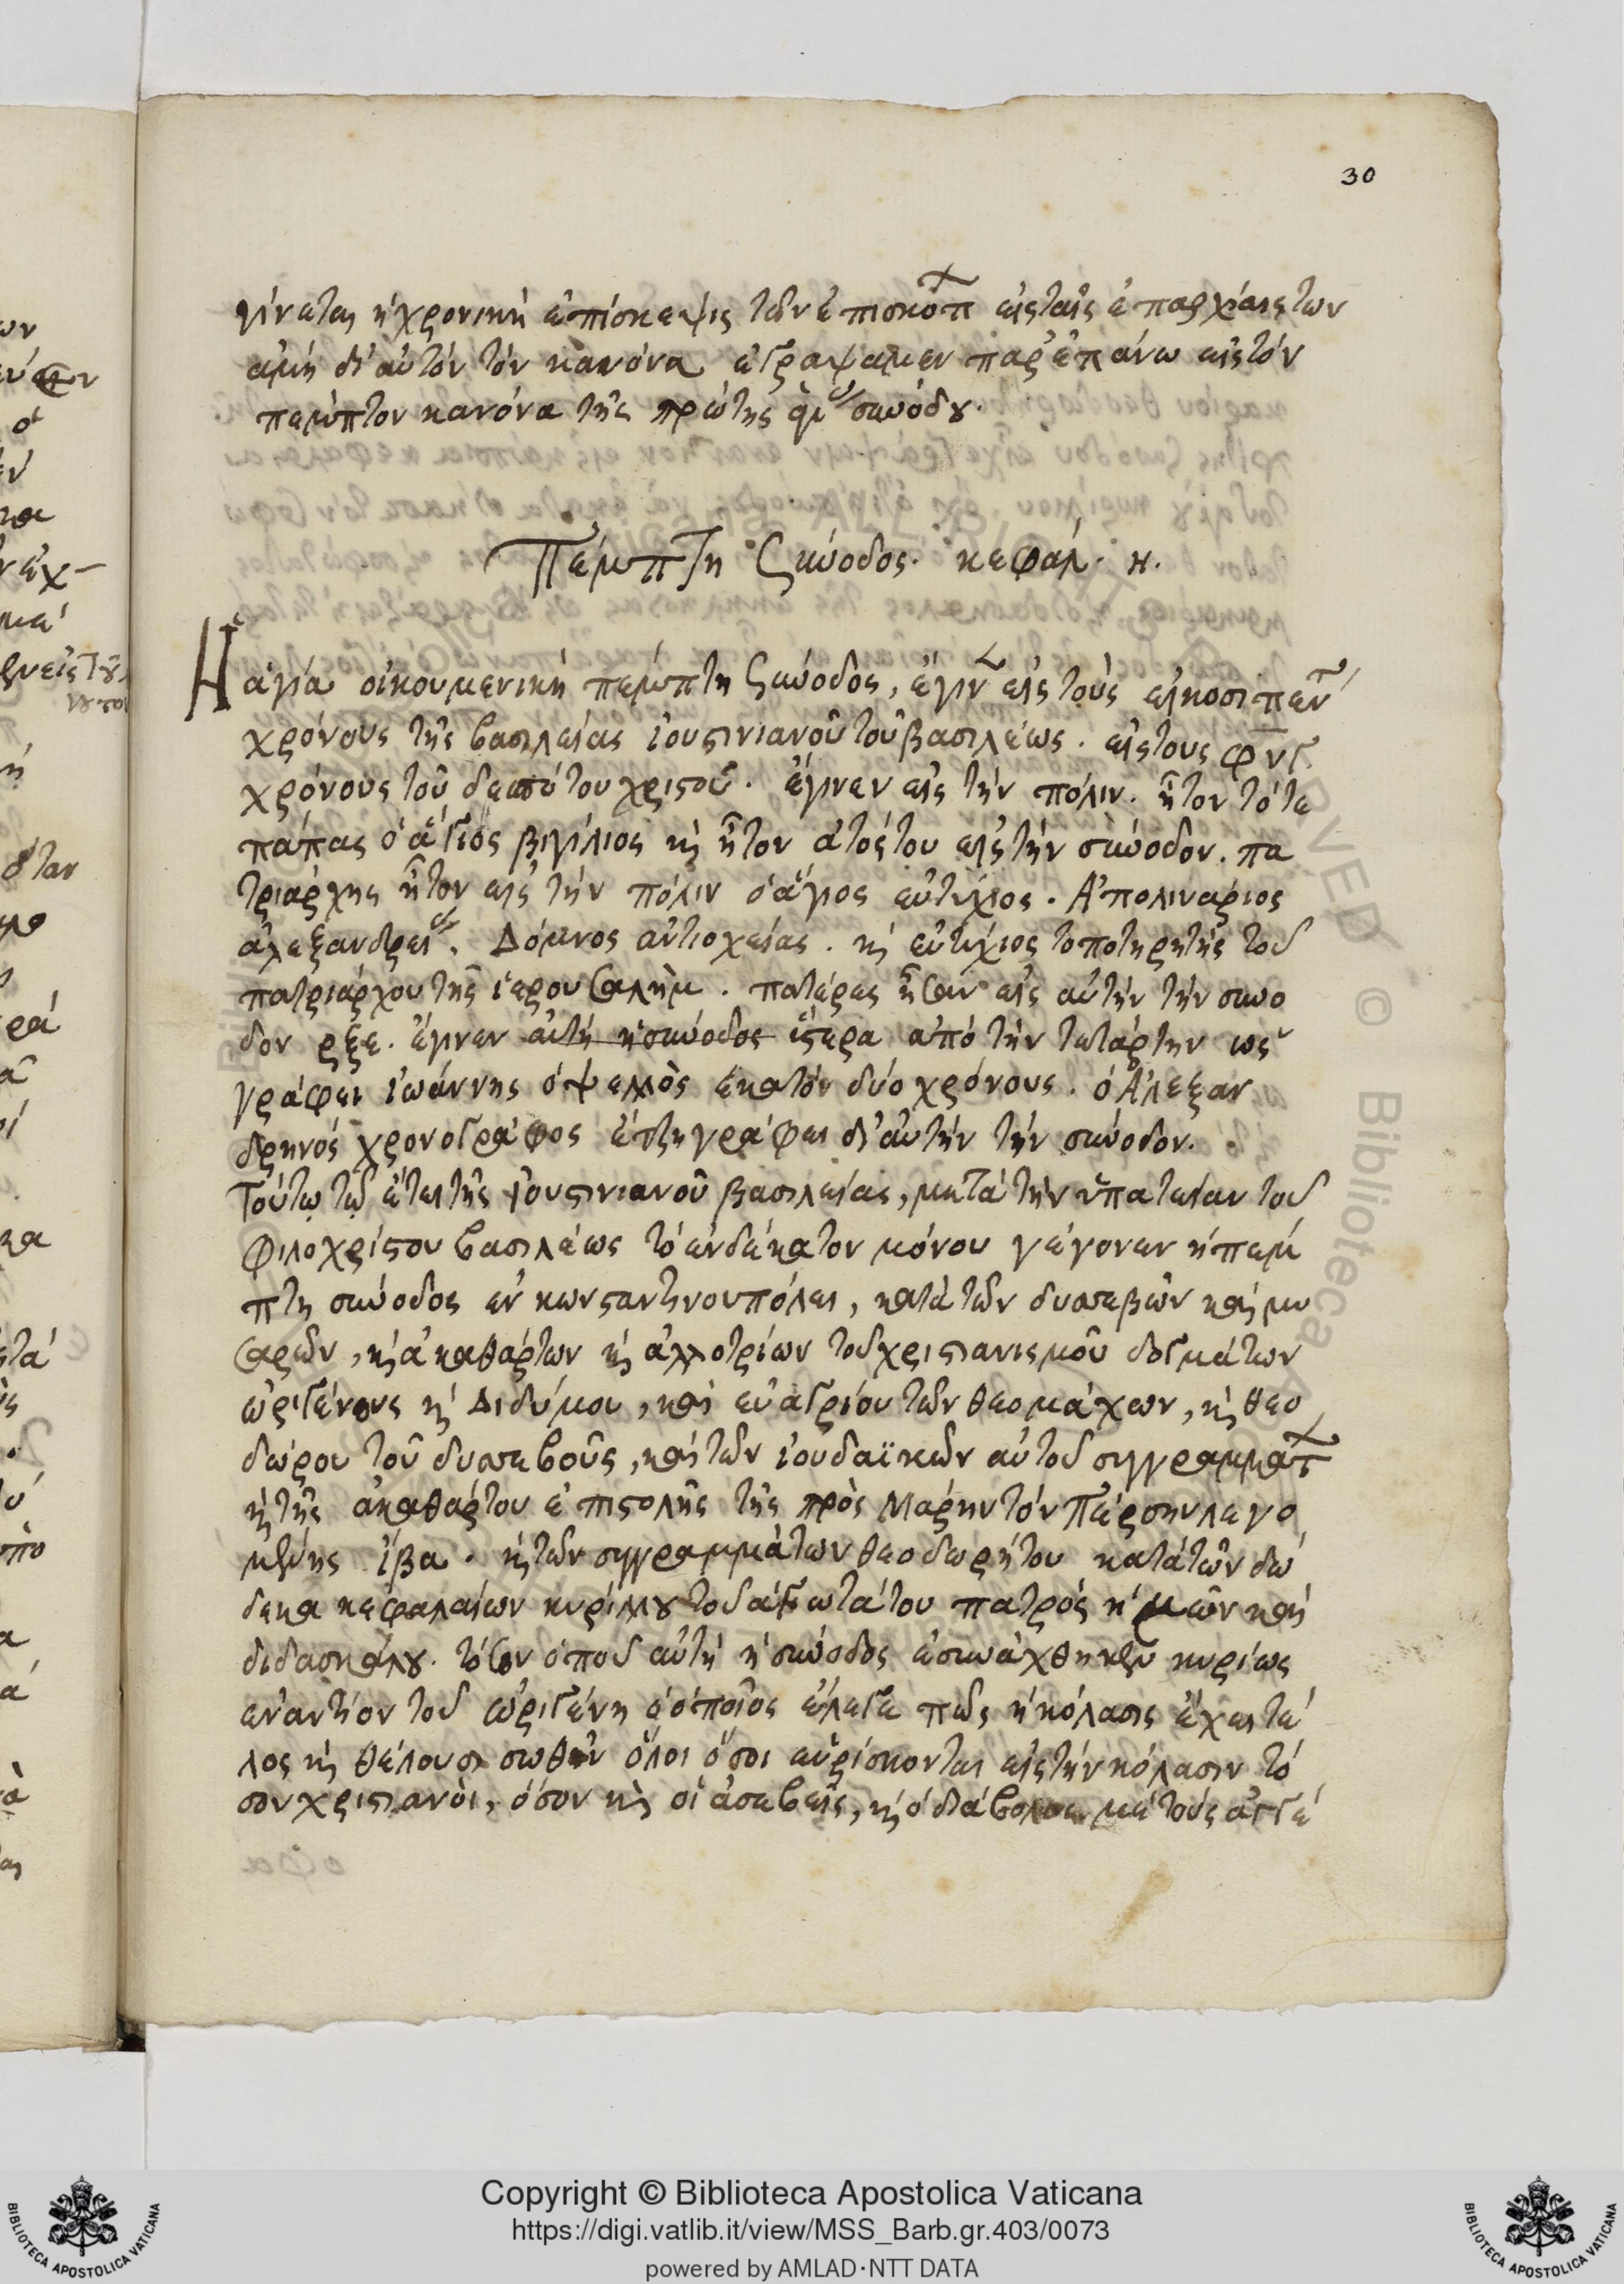 30
γίνεται ἡ χρονικὴ ἐπίσκεψις τῶν ἐπισκόπ εἰς ταῖς ἐπαρχίαις των
ἀμὴ δι' αὐτόν τόν κανόνα ἐγράψαμεν παρ' ἐπάνω εἰς τόν
πέμπτον κανόνα τῆς πρώτης συνόδου.
Πέμπτη Σύνοδος. κεφάλ. η.
Ἡ ἁγία οἰκουμενική πέμπτη Σύνοδος, ἔγιν εἰς τούς εἰκοσιπέντ
χρόνους τῆς βασιλείας ἰουστινιανοῦ τοῦ βασιλέως. εἰς τους φνγ.
χρόνους τοῦ δεσπότου χριστοῦ. ἔγινεν εἰς τήν πόλιν. ἦτον τότε
πάπας ὁ ἅγιος βιγίλιος κὴ ἦτον ἀτός του εἰς τήν σύνοδον. πα
τριάρχης ἦτον εἰς τήν πόλιν ὁ ἅγιος εὐτύχιος. Ἀπολινάριος
ἀλεξανδρείας. Δόμνος ἀντιοχείας. κὴ εὐτύχιος τοποτηρητής τοῦ
πατριάρχου τῆς ἱερουσαλὴμ. πατέρες ἦσαν εἰς αὐτήν τήν συνο
δον ρξε. ἔγινεν αὐτή ἡ σύνοδος ὕστερα ἀπό τήν τετάρτην ὡς
γράφει ἰωάννης ὁ ψελλὸς ἑκατόν δύο χρόνους. ὁ Ἀλεξαν
δρηνός χρονογράφος ἔτζη γράφει δι' αὐτήν τήν σύνοδον.
Τούτῳ τῷ ἔτει τῆς ἰουστινιανοῦ βασιλείας, μετά τήν ὑπατείαν τοῦ
φιλοχρίστου βασιλέως τό ἑνδέκατον μόνου γέγονεν ἡ πέμ
πτη σύνοδος ἐν κωνσταντινουπόλει, κατά τῶν δυσσεβῶν καί μυ
σαρῶν, κὴ ἀκαθάρτων κὴ ἀλλοτρίων τοῦ χριστιανισμοῦ δογμάτων
ὠριγένους κὴ Διδύμου, καί εὐαγρίου τῶν θεομάχων, κὴ θεο
δώρου τοῦ δυσσεβοῦς, καί τῶν ἰουδαϊκῶν αὐτοῦ συγγραμμάτ
κὴ τῆς ἀκαθάρτου ἐπιστολῆς τῆς πρὸς Μάρην τόν Πέρσην λεγο
μένης ἴβα. κὴ τῶν συγγραμμάτων θεοδωρήτου κατά τῶν δώ
δεκα κεφαλαίων κυρίλλου τοῦ ἁγιωτάτου πατρός ἡμῶν καί
διδασκάλου. τόσον ὁποῦ αὐτή ἡ σύνοδος ἐσυνάχθηκεν κυρίως
ἐναντίον τοῦ ὠριγένη ὁ ὁποῖος ἔλεγε πῶς ἡ κόλασις ἔχει τέ
λος κὴ θέλουσι σωθῆν ὅλοι ὅσοι εὑρίσκονται εἰς τήν κόλασιν τό
σον χριστιανοὶ, ὅσον κὴ οἱ ἀσεβεῖς, κὴ ὁ διάβολος μέ τούς ἀγγέ
Copyright © Biblioteca Apostolica Vaticana
https://digi.vatlib.it/view/MSS_Barb.gr.403/0073
powered by AMLAD·NTT DATA